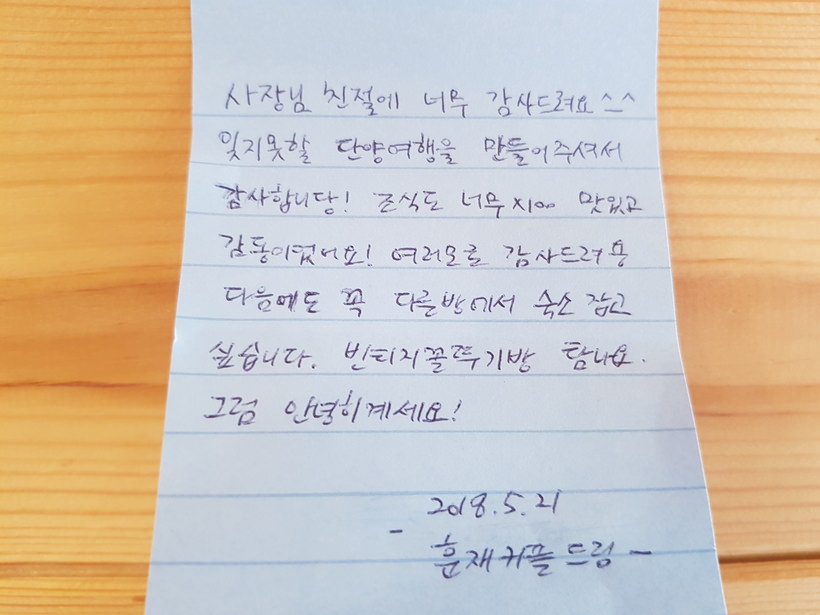 사장님 친절에 너무 감사드려요^_^
잊지못할 단양여행을 만들어주셔서
감사합니당! 조식도 너무x100 맛있고
감동이었어요! 여러모로 감사드려용
다음에도 꼭 다른방에서 숙소 잡고
싶습니다. 빈티지꼴뚜기방 탐나요.
그럼 안녕히계세요!
2018.5.21
- 훈재커플 드림 -